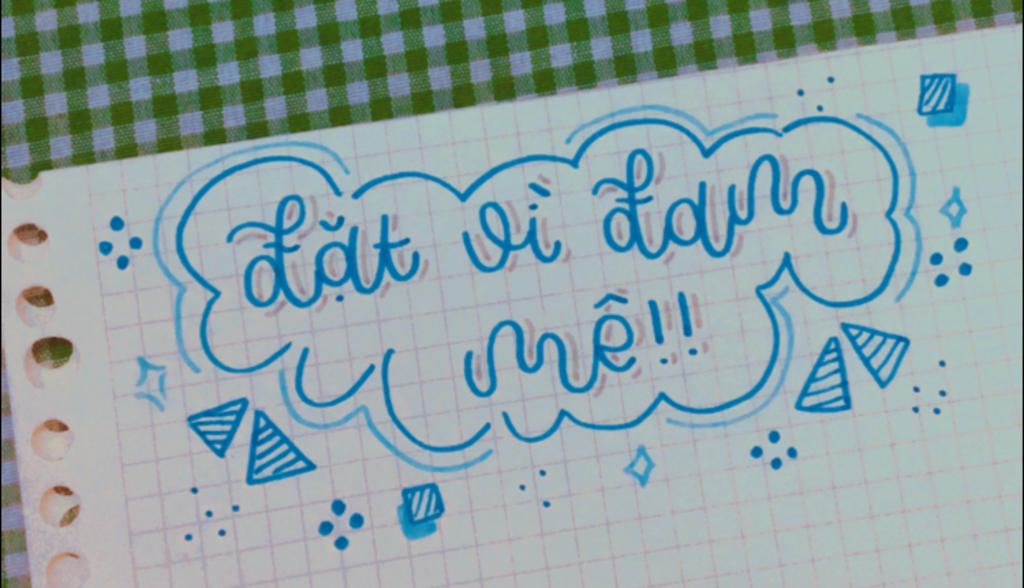 đặt vì đam
mê!!